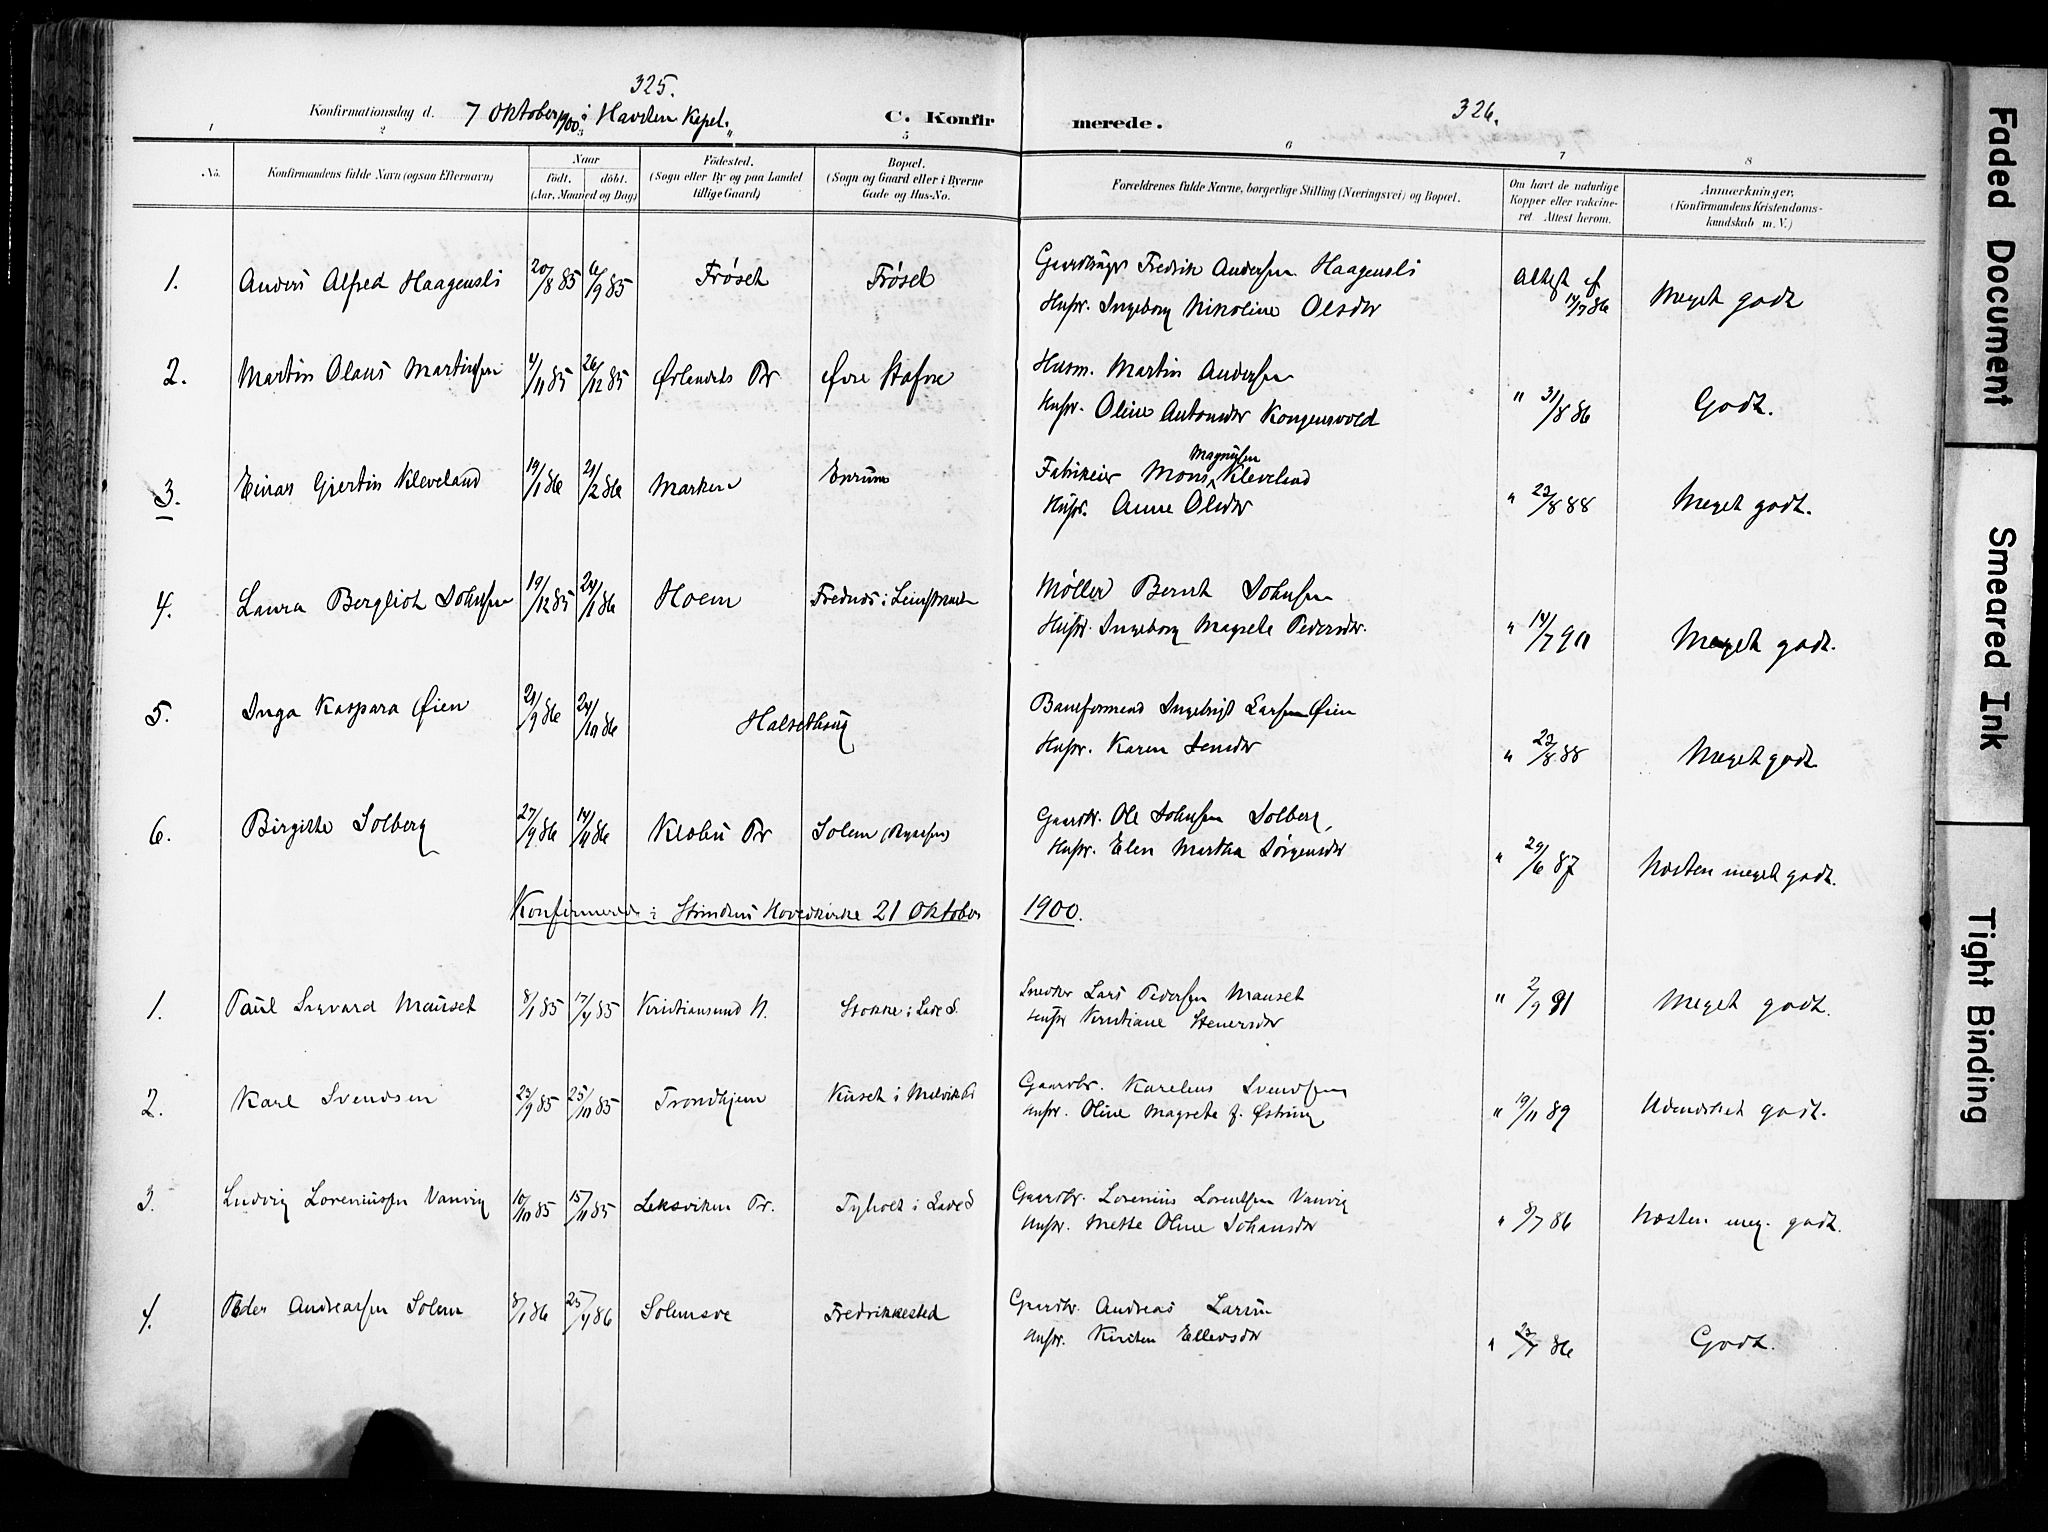 325.
Konfirmationsdag d. 7 Oktober 1900 i Havsten Kapel.
C. Konfirmerede.
326.
1 2 3 5 6 7 8
No.
Konfirmandens fulde Navn (ogsaa Efternavn)
Naar
født. døbt.
(Aar, Maaned og Dag)
Fødested.
(Sogn eller By og paa Landet
tillige Gaard)
Bopæl.
(Sogn og Gaard eller i Byerne
Gade og Hus-No.
Forældrenes fulde Navne, borgerlige Stilling (Næringsvei) og Bopæl.
Om havt de naturlige
Kopper eller vakcine-
ret. Attest herom.
Anmærkninger.
(Konfirmandens Kristendoms-
kundskab m. V.)
1. Anders Alfred Haagensli 20/8 85 6/9 85 Frøset Frøset Gaardbruger Fredrik Andersen Haagensli
Hustr. Ingeborg Nikoline Olsdtr
Attest af 17/7 86 Meget godt
2. Martin Olaus Martinsen 4/11 85 26/12 85 Ørlandets Pr Øvre Stafne Husm. Martin Andersen
Hustr. Oline Antonsdtr Kongensvold
" 31/8 86 Godt.
3. Einar Gjertin Kleveland 19/1 86 21/2 86 Marken Enrum Fabrikeier Mons Magnusen Kleveland
Hustr. Anne Olsdtr
" 22/8 88 Meget godt.
4. Laura Bergliot Johnsen 19/12 85 24/1 86 Hoem Frednes i Leinstrand Møller Bernt Johnsen
Hustr. Ingeborg Magrete Pedersdtr.
" 14/7 90 Meget godt.
5. Inga Kaspara Øien 21/9 86 24/10 86 Halsethaug Baneformand Ingebrigt Larsen Øien
Hustr. Karen Jensdtr
" 22/8 88 Meget godt
6. Birgitte Solberg 27/9 86 14/11 86 Klæbu Pr Solem Gaardbr. Ole Johnsen Solberg,
Hustr. Elen Martha Jørgensdtr
" 29/6 87 Næsten meget godt.
Konfirmerede i Strindens Hovedkirke 21 Oktober 1900.
1. Paul Sigvard Mauset 8/1 85 17/4 85 Kristiansund N. Stokke i Lade S. Snedker Lars Pedersen Mauset
Hustr Kristiane Stenersdtr
" 2/9 91 Meget godt.
2. Karl Svendsen 23/9 85 25/10 85 Trondhjem Kuset i Malvik S. Gaardbr. Karelius Svendsen
Hustr. Oline Magrete f. Østring
" 19/11 89 Udmærket godt.
3. Ludvig Loreniussen Vanvig 10/10 85 15/11 85 Leksviken Pr. Tyholt i Lade S Gaardbr. Lorenius Lorentsen Vanvig
Hustr. Mette Oline Johansdtr
" 8/7 86 Næsten meg. godt.
4. Peder Andreassen Solem 8/1 86 25/4 86 Solemsve Fredrikkested Gaardbr. Andreas Larsen
Hustr. Kirsten Ellevsdtr
" 86 Godt.
Faded Document
Smeared Ink
Tight Binding